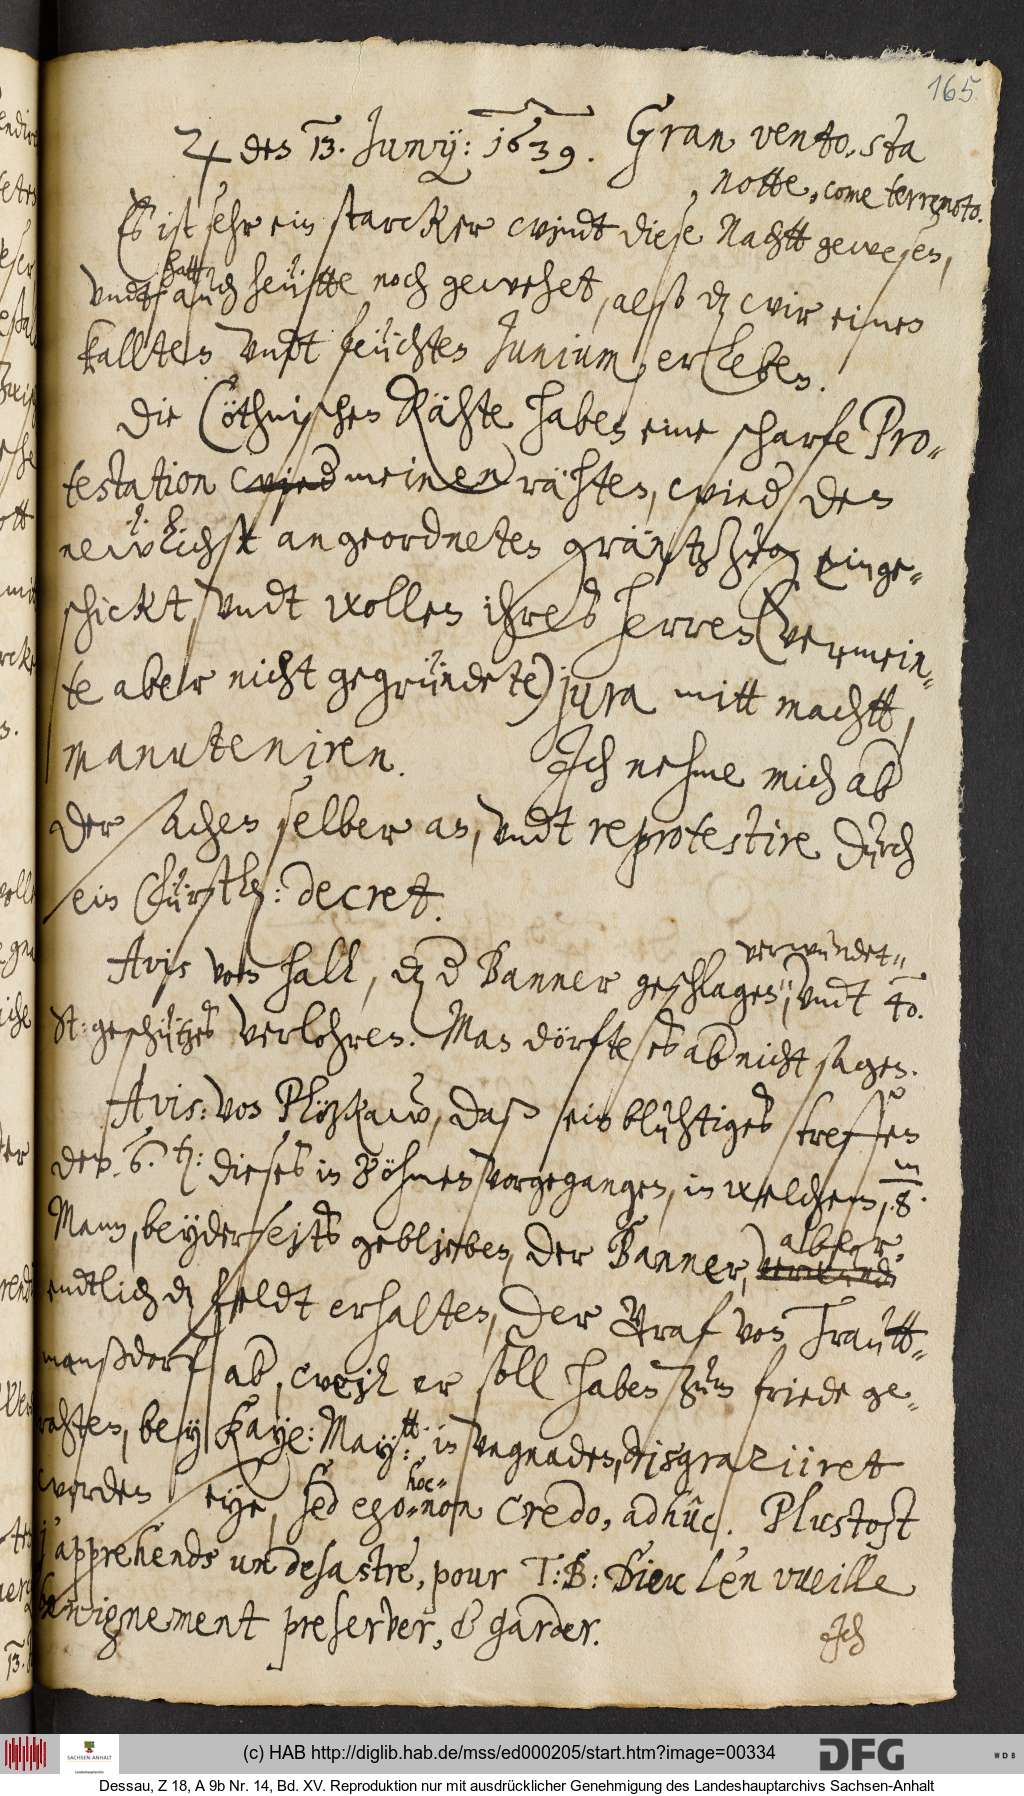 165
♃ des 13. Junij: 1639. Gran vento, sta
notte, come terremoto.
Es ist sehr ein starcker windt diese Nachtt gewesen,
vndt hatt auch heütte noch gewehet, alß dz wir einen
kallten vndt feüchten Junium, erleben.
Die Cöthnischen Rähte haben eine scharfe Pro-
testation wied meinen rähten, wied den
newlichst angeordneten gräntzzug einge-
schickt, vndt wollen ihres herren (vermein-
te aber nicht gegründete) jura mitt machtt,
manuteniren. Ich nehme mich ab
der sachen selber an, vndt reprotestire durch
ein Fürstl: decret.
Avis von hall, dz d Banner geschlagen, verwundet, vndt 40.
St: geschützes verlohren. Man dörfte es ab nicht sagen.
Avis: von Plötzkaw, daß ein bluhtiges treffen
den 6. h: dieses in Böhmen vorgegangen, in welchem, 8. m
Mann, beyderseits geblieben, der Banner, aber
endtlich dz feldt erhalten, der Graf von Trautt-
manßdorf ab, weil er soll haben zum friede ge-
rahten, bey Kaye: May:tt in vngnaden, disgraziiret
worden seye, sed ego hoc non credo, adhuc. Plustost
j'apprehende un desastre, pour T: B: Dieu l'en vueille
benignement preserver, & garder.
Ich
(c) HAB http://diglib.hab.de/mss/ed000205/start.htm?image=00334
SACHSEN-ANHALT
DFG
WDB
Dessau, Z 18, A 9b Nr. 14, Bd. XV. Reproduktion nur mit ausdrücklicher Genehmigung des Landeshauptarchivs Sachsen-Anhalt